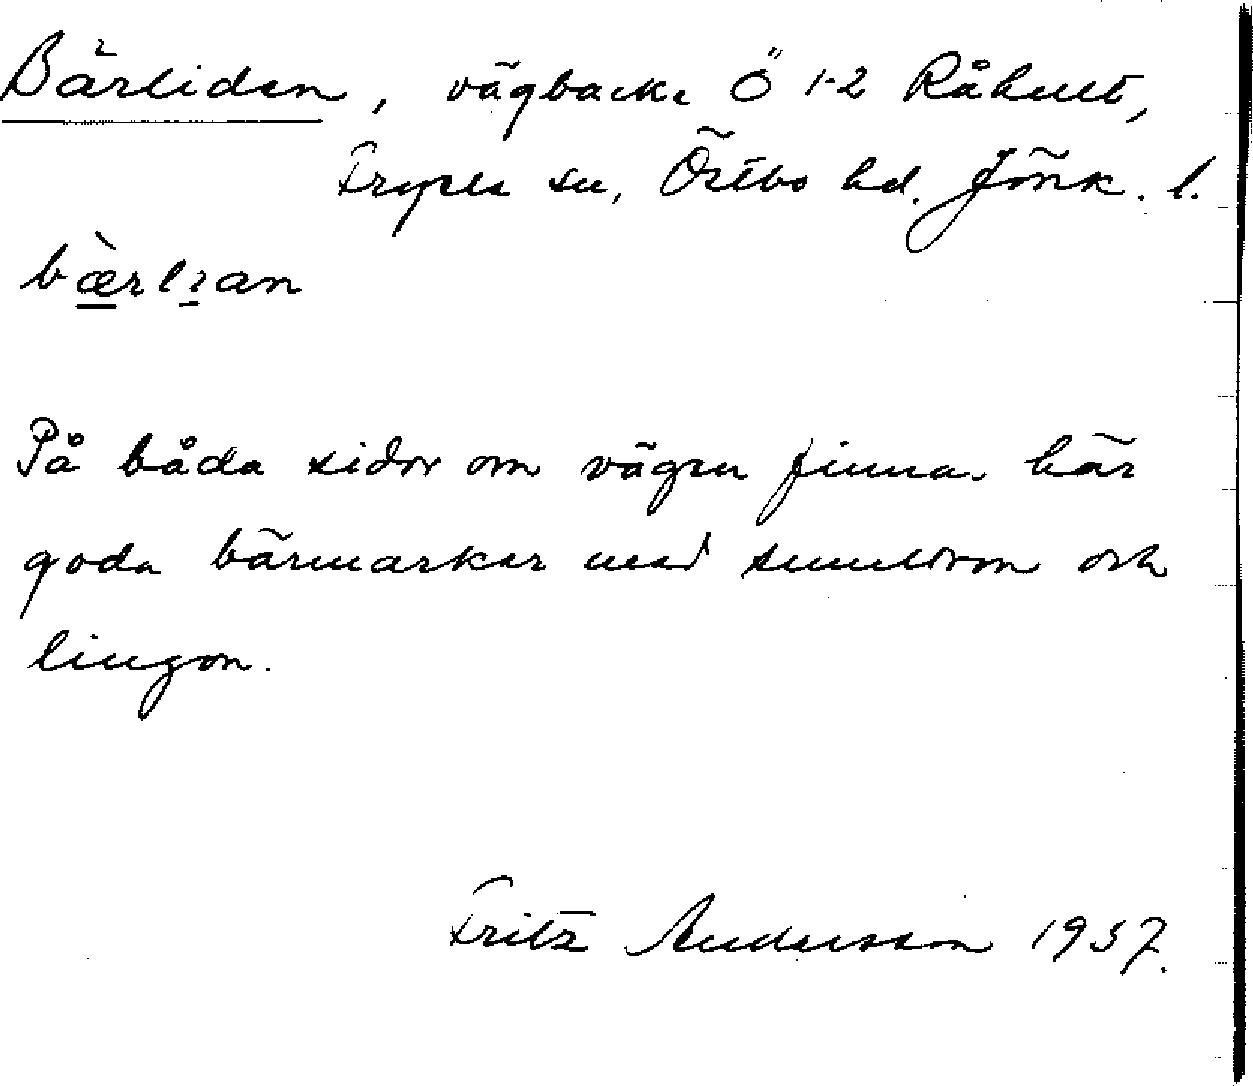 Bärliden, vägbacke Ö 1-2 Råhult,
Fryele sn, Östbo hd. Jönk. l.
bærlian
På båda sidor om vägen finna här
goda bärmarker med smultron och
lingon.
Fritz Andersson 1937.